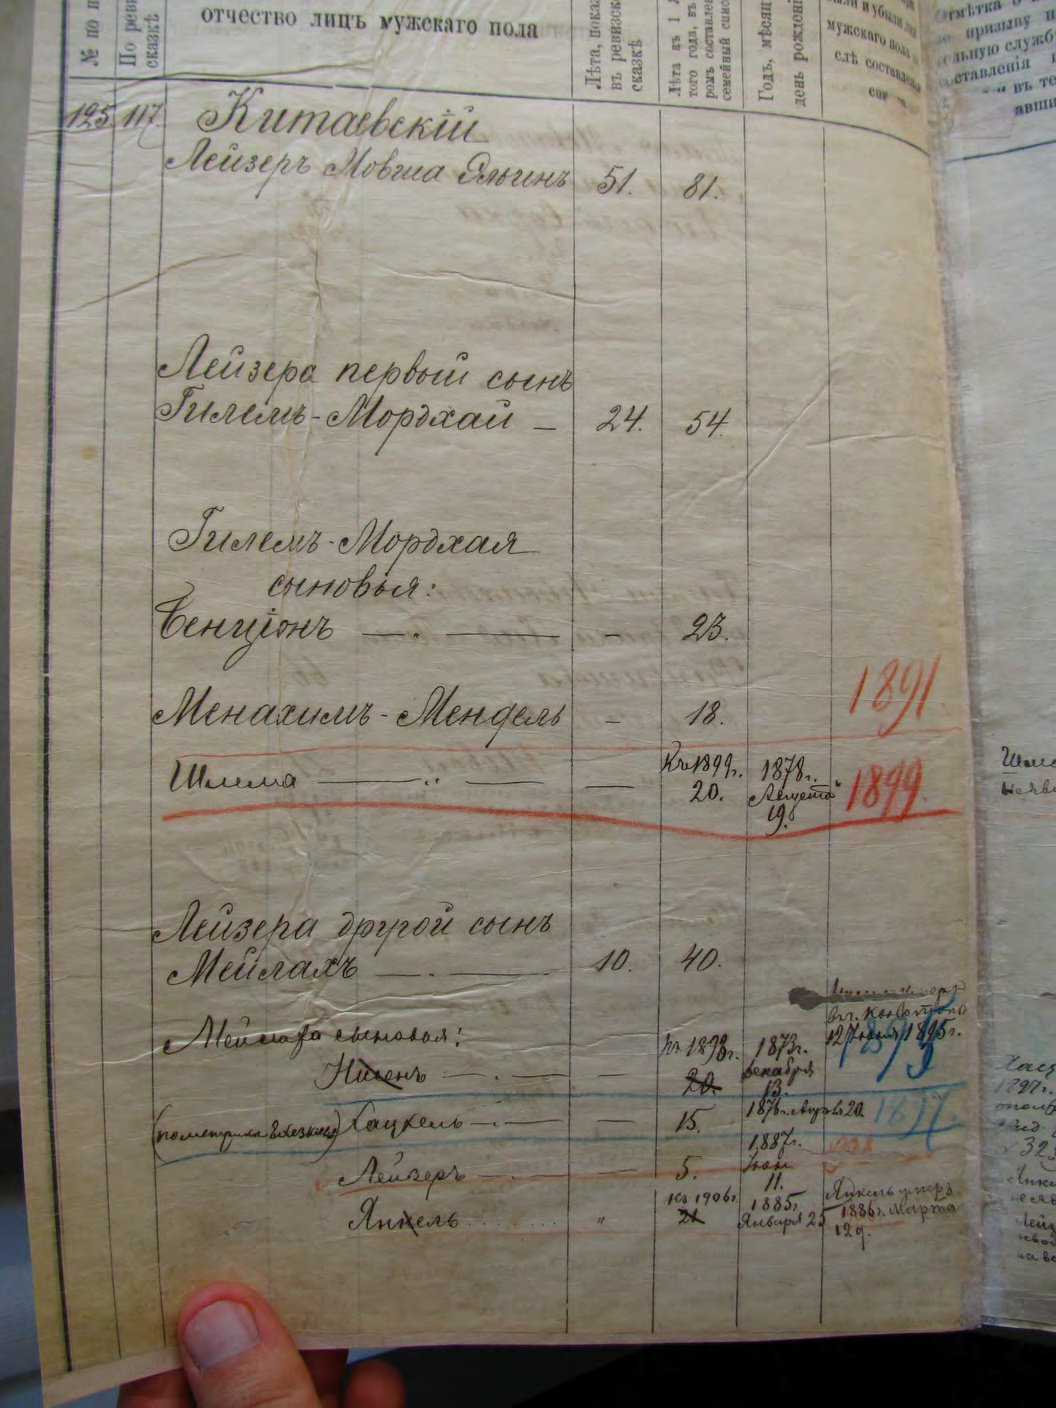 № по п
По реви
сказкѣ
отчество лицъ мужскаго пола
Лѣта, показ
въ ревизск
сказкѣ
Лѣта къ 1
того года, въ
ромъ составлен
семейный списо
Годъ, мѣсяцъ
день рожденія
или и убыли
мужскаго пола
слѣ составлені
спи
тмѣтка о
призыву н
ельную служб
ставленія
въ те
авши
125. 117. Китаевскій
Лейзеръ Мовша Эльчинъ 51. 81.
Лейзера первый сынъ
Гилемъ-Мордхай — 24. 54.
Гилемъ-Мордхая
сыновья:
Бенціонъ — . — - 23.
Менахимъ-Мендель - 18. 1891.
Шлема — .. — — Къ 1899г. 20. 1878г. 19. 1899.
Лейзера другой сынъ
Мейлахъ — . — 10. 40.
12 1895г.
Мейлаха сыновья:
Нисенъ — . — — къ 1898г. 20. 1873г. декабря 13. 1895
Хацкель — . — — 15. 1876г. 20. 1897
Лейзеръ — . — 5. 1887г. 11.
Янкель " къ 1906г. 21 1885г. Января 25 Янкель умеръ
1886г. Марта
12д.